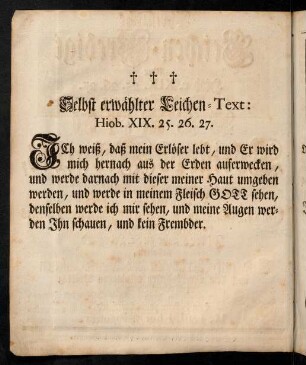 † † †
Selbst erwählter Leichen-Text:
Hiob. XIX. 25. 26. 27.
ICh weiß, daß mein Erlöser lebt, und Er wird
mich hernach aus der Erden auferwecken,
und werde darnach mit dieser meiner Haut umgeben
werden, und werde in meinem Fleisch GOTT sehen,
denselben werde ich mir sehen, und meine Augen wer-
den Ihn schauen, und kein Frembder.